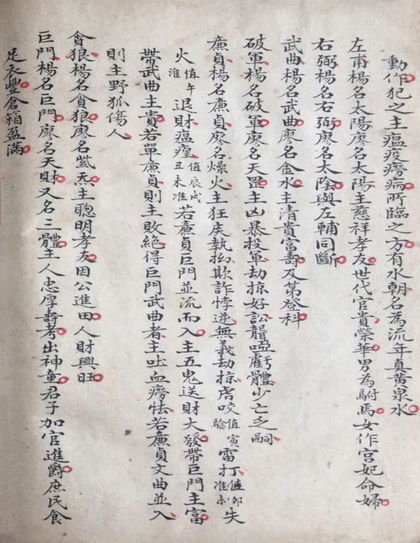 動作犯之主瘟疫癆病所臨之方有水朝名為流年真黃泉水
左甫楊名太陽廖名太陽主慈祥孝友世代官貴榮華男為駙馬女作宮妃命婦
右弼楊名右弼廖名太陰與左輔同斷
武曲楊名武曲廖名金水主清貴富壽及第登科
破軍楊名破軍廖名天罡主凶暴投軍劫掠好訟聾啞虧體少亡乏嗣
廉貞楊名廉貞廖名燥火主狂戾執拗欺詐悖逆無義劫掠虎咬值寅驗雷打值卯准未失
火值午准退財瘟㾮值辰戌丑未准若廉貞巨門並流而入主五鬼送財大發帶巨門主富
帶武曲主貴若單廉貞則主敗絕得巨門武曲者主吐血癆怯若廉貞文曲並入
則主野狐傷人
貪狼楊名貪狼廖名紫炁主聰明孝友因公進田人財興旺
巨門楊名巨門廖名天財又名三體主人忠厚壽考出神童君子加官進爵庶民食
足衣豐倉箱盈滿